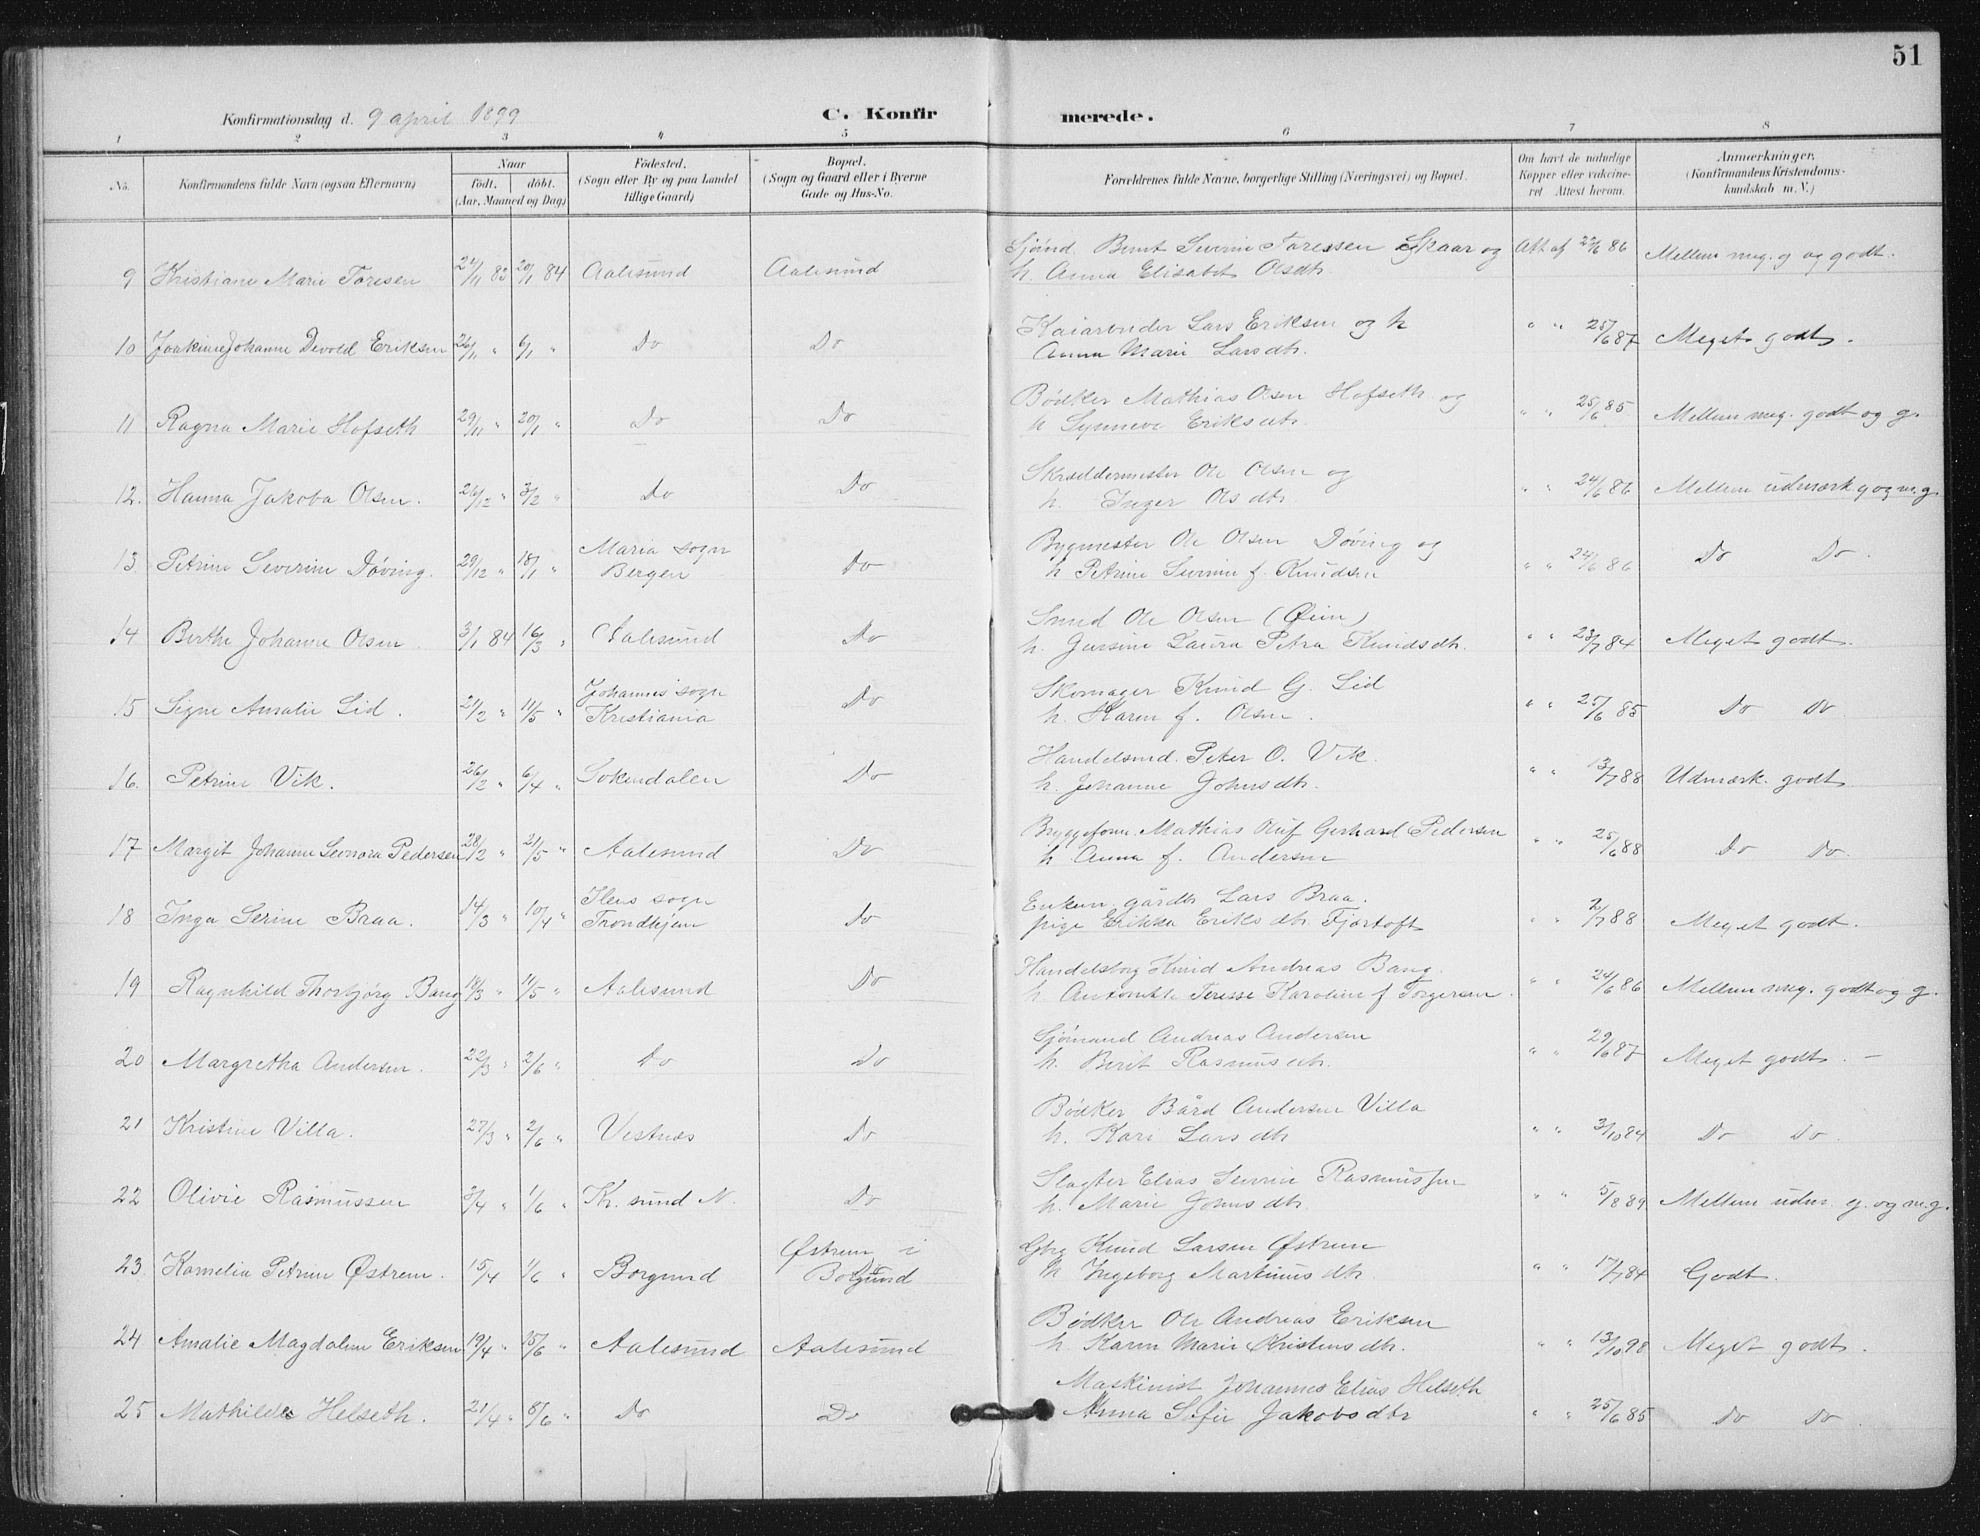 51
Konfirmationsdag d. 9 april 1899
C. Konfirmerede.
1 2 3 4 5 6 7 8
No.
Konfirmandens fulde Navn (ogsaa Efternavn)
Naar
födt. döbt.
(Aar, Maaned og Dag)
Födested.
(Sogn eller By og paa Landet
tillige Gaard)
Bopæl.
(Sogn og Gaard eller i Byerne
Gade og Hus-No.
Forældrenes fulde Navne, borgerlige Stilling (Næringsvei) og Bopæl.
Om havt de naturlige
Kopper eller vakcine-
ret Attest herom.
Anmærkninger.
(Konfirmandens Kristendoms-
kundskab m. V.)
Sjömd. Bernt Severin Toressen Skaar og
9 Kristiane Marie Toresen 21/11 83 20/1 84 Aalesund Aalesund h. Anna Elisabet Olsdtr. Att af 22/6 86 Mellem meg. g og godt.
Kaiarbeider Lars Eriksen og h
10 Joakime Johanne Devold Eriksen 26/11 " 6/1 " Do Do Anna Marie Larsdtr. " " 25/6 87 Meget godt.
Bødker Mathias Olsen Hofseth og
11 Ragna Marie Hofseth 29/11 " 20/1 " Do Do h Synneve Eriksdtr. " " 25/6 85 Mellem meg. godt og g.
Skræddermester Ole Olsen og
12. Hanna Jakoba Olsen. 26/12 " 3/2 " Do Do h. Inger Olsdtr. " " 24/6 86 Mellem udmærk. g og m. g.
Maria sogn Bygmester Ole Olsen Døving og
13 Petrine Severine Døving. 29/12 " 18/1 " Bergen Do h Petrine Severine f. Knudsen " " 24/6 86 Do Do.
Smed Ole Olsen (Øien)
14 Berthe Johanne Olsen 3/1 84 16/3 " Aalesund Do h. Jensine Laura Petra Knudsdtr. " " 23/7 84 Meget godt.
Johannes' sogn Skomager Knud G. Lid
15 Signe Amalie Lid. 21/2 " 11/5 " Kristiania Do h. Karen f. Olsen. " " 25/6 85 Do Do
Handelsmd. Peter O. Vik.
16. Petrine Vik. 26/2 " 6/4 " Sokendalen Do h. Johanne Johnsdtr. " " 13/7 88 Udmærk. godt
Bryggeform. Mathias Oluf Gerhard Pedersen
17 Margit Johanne Leonora Pedersen 28/2 " 21/5 " Aalesund Do h. Anna f. Andersen " " 25/6 88 Do Do.
Ilens sogn Enkem. gårdbr Lars Braa.
18 Inga Serine Braa. 14/3 " 10/4 " Trondhjem Do pige Erikka Eriksdtr. Fjørtoft " " 2/7 88 Meget godt.
Handelsborg Knud Andreas Bang.
19 Ragnhild Thorbjörg Bang 18/3 " 11/5 " Aalesund Do h. Teresse Karoline f Torgersen. " " 24/6 86 Mellem meg. godt og g.
Sjømand Andreas Andersen
20 Margretha Andersen. 22/3 " 2/6 " Do Do h. Berit Rasmusdtr. " " 29/6 87 Meget godt. –
Bødker Bård Andersen Villa
21 Kristine Villa. 27/3 " 2/6 " Vestnæs Do h. Kari Larsdtr " " 3/10 84 Do Do.
Slagter Elias Severin Rasmussen
22 Olivie Rasmussen 3/4 " 1/6 " Kr. sund N. Do h. Marie Johnsdtr. " " 5/8 89 Mellem udm. g. og m. g.
Østrem i Gbr Knud Larsen Østrem
23. Kornelia Petrine Østrem. 15/4 1/6 " Borgund Borgund h Ingeborg Martinusdtr. " " 17/7 84 Godt.
Bødker Ole Andreas Eriksen
24 Amalie Magdalene Eriksen 19/4 " 15/6 " Aalesund Aalesund h. Karen Marie Kristensdtr. " " 13/10 98 Meget godt.
Maskinist Johannes Elias Helseth
25 Mathilde Helseth. 21/4 " 8/6 " Do Do Anna Sofie Jakobsdtr " " 25/6 85 Do Do.